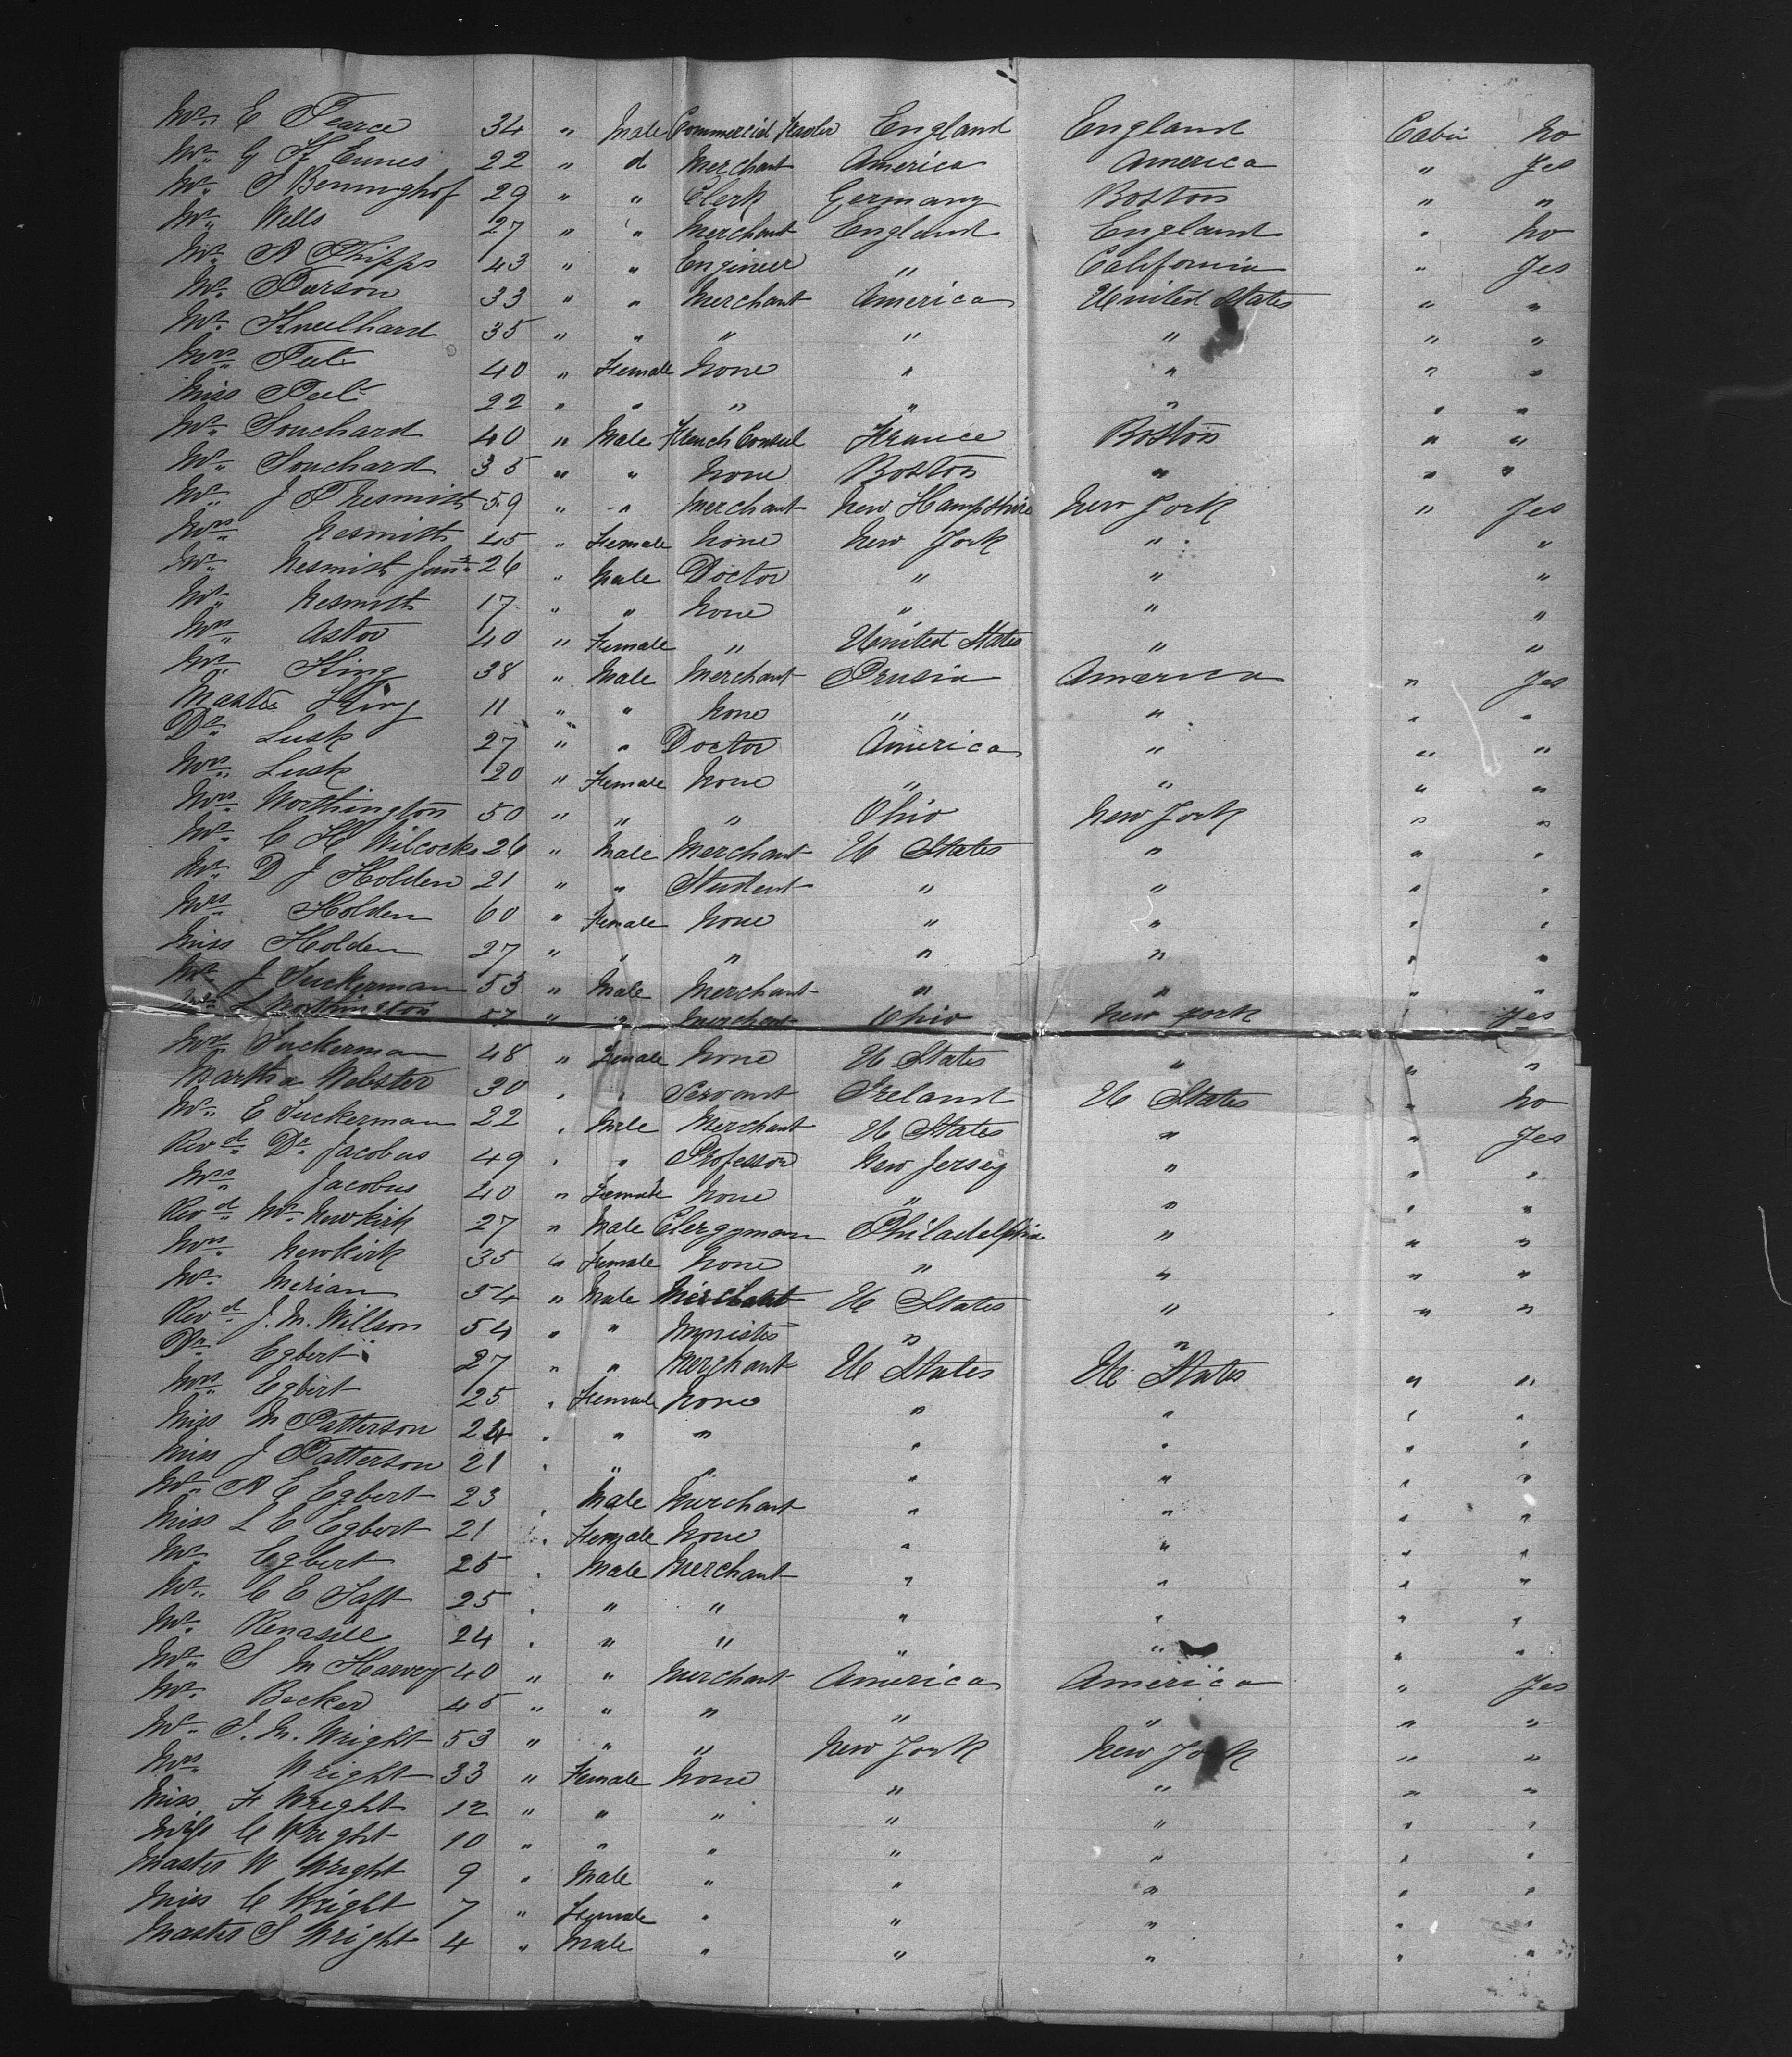 Mr. E Pearce 34 " Male Commercial England England Cabin No
Mr. G F Eunes 22 " d Merchant America America " Yes
Mr. J Benninghof 29 " " Clerk Germany Boston " "
Mr. Wells 27 " " Merchant England England " No
Mr. R Phipps 43 " " Engineer " California " Yes
Mr. Parson 33 " " Merchant America United States " "
Mr. Kneelhard 35 " " " " " " "
Mrs. Peet 40 " Female None " " " "
Miss Peet 22 " " " " " " "
Mr. Souchard 40 " Male French Consul France Boston " "
Mr. Souchard 35 " " None Boston " " "
Mr. J P Nesmith 59 " " Merchant New Hampshire New York " Yes
Mrs. Nesmith 45 " Female None New York " "
Mr. Nesmith Junr. 26 " Male Doctor " " "
Mr. Nesmith 17 " " None " " "
Mrs. Astor 40 " Female " United States " "
Mr. King 38 " Male Merchant Prusia America " Yes
Master King 11 " " None " " " "
Dr. Lusk 27 " " Doctor America " " "
Mrs. Lusk 20 " Female None " " " "
Mrs. Worthington 50 " " " Ohio New York " "
Mr. C H Wilcocks 26 " Male Merchant U States " " "
Mr. D J Holden 21 " " Student " " " "
Mrs. Holden 60 " Female None " " " "
Miss Holden 27 " " " " " " "
Mr. J Tuckerman 53 " Male Merchant " " " "
L Worthington 57 " " Merchant Ohio New york Yes
Mrs. Tuckerman 48 " Female None U States " " "
Martha Webster 30 " " Servant Ireland U States " No
Mr. E Tuckerman 22 " Male Merchant U States " " Yes
Revd. Dr. Jacobus 49 " " Professor New Jersey " " "
Mrs. Jacobus 40 " Female None " " " "
Revd. Mr. Newkirk 27 " Male Clergyman Philadelphia " " "
Mrs. Newkirk 35 " Female None " " " "
Mr. Merian 54 " Male Merchant U States " " "
Revd. J. M. Willson 54 " " Minister " "
Dr. Egbert 27 " " Merchant U States U States " "
Mrs. Egbert 25 " Female None " " " "
Miss M Patterson 24 " " " " " " "
Miss J Patterson 21 " " " " " " "
Mr. R C Egbert 23 " Male Merchant " " " "
Miss L C Egbert 21 " Female None " " " "
Mr. Egbert 25 " Male Merchant " " " "
Mr. C E Taft 25 " " " " " " "
Mr. 24 " " " " " " "
Mr. S M Harvey 40 " " Merchant America America " Yes
Mr. Becker 45 " " " " " " "
Mr. J. M. Wright 53 " " " New York New York " "
Mrs. Wright 33 " Female None " " " "
Miss F Wright 12 " " " " " " "
Miss C Wright 10 " " " " " " "
Master W Wright 9 " Male " " " " "
Miss C Wright 7 " Female " " " " "
Master S Wright 4 " Male " " " " "